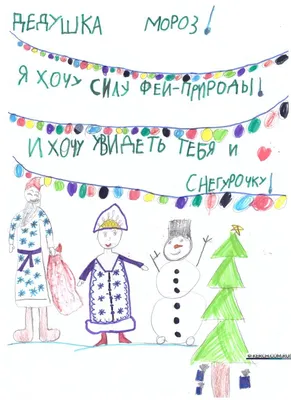 ДЕДУШКА МОРОЗ!
Я ХОЧУ СИЛУ ФЕИ-ПРИРОДЫ!
И ХОЧУ УВИДЕТЬ ТЕБЯ И
СНЕГУРОЧКУ!